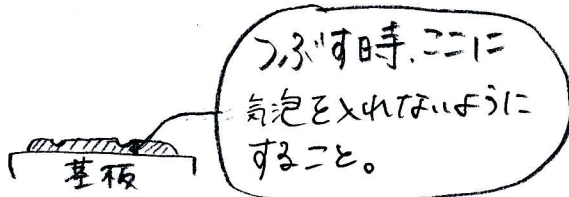 つぶす時、ここに
気泡を入れないように
すること。
基板